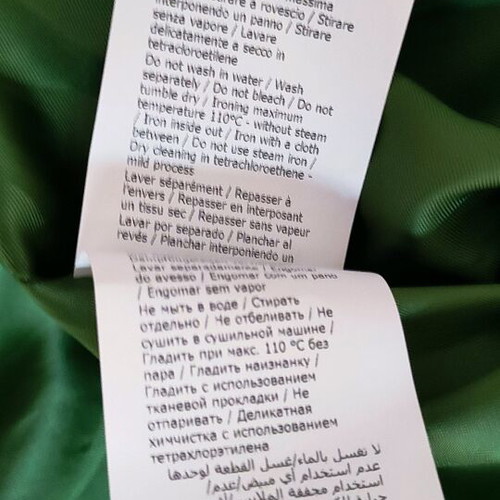 a rovescio / Stirare
interponendo un panno / Stirare
senza vapore / Lavare
delicatamente a secco in
tetracloroetilene
Do not wash in water / Wash
separately / Do not bleach / Do not
tumble dry / Ironing maximum
temperature 110ºC - without steam
/ Iron inside out / Iron with a cloth
between / Do not use steam iron /
Dry cleaning in tetrachloroethene -
mild process
Laver séparément / Repasser à
l'envers / Repasser en interposant
un tissu sec / Repasser sans vapeur
Lavar por separado / Planchar al
revés / Planchar interponiendo un
Lavar separadamente / Engomar
do avesso / Engomar com um pano
/ Engomar sem vapor
Не мыть в воде / Стирать
отдельно / Не отбеливать / Не
сушить в сушильной машине /
Гладить при макс. 110 ºC без
пара / Гладить наизнанку /
Гладить с использованием
тканевой прокладки / Не
отпаривать / Деликатная
химчистка с использованием
тетрахлорэтилена
لا تغسل بالماء/غسل القطعة لوحدها
عدم استخدام أي مبيض/عدم/
استخدام مجففة الملابس